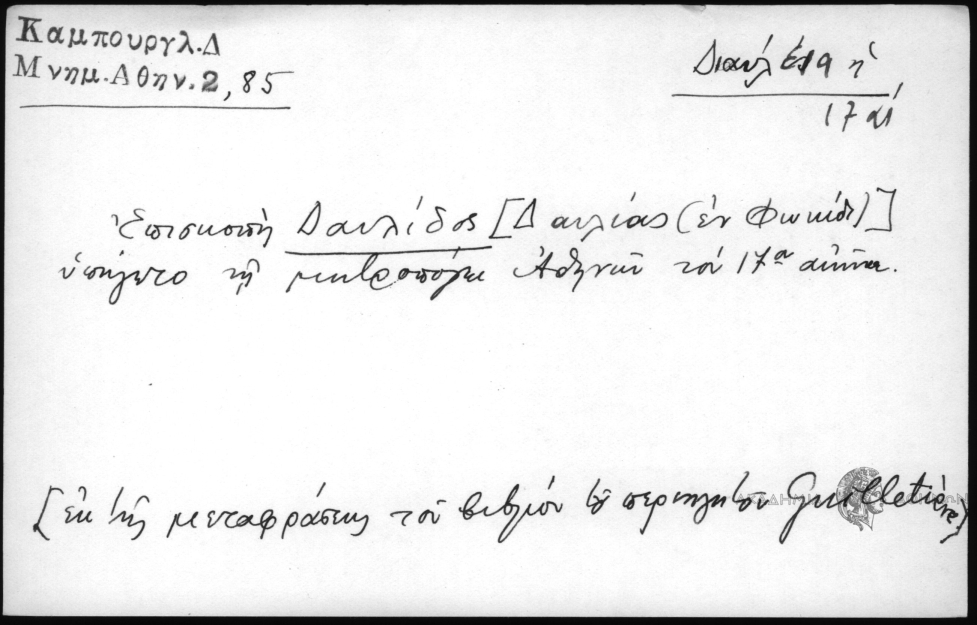 Καμπουργλ.Δ
Μνημ.Αθην.2, 85
17 αἰ
Ἐπισκοπὴ Δαυλίδος [Δαυλίας (ἐν Φωκίδι)]
ὑπήγετο τῇ μητροπόλει Ἀθηνῶν τὸν 17ον αἰῶνα.
[ἐκ τῆς μεταφράσεως τοῦ βιβλίου τοῦ περιηγητοῦ Guilletière]